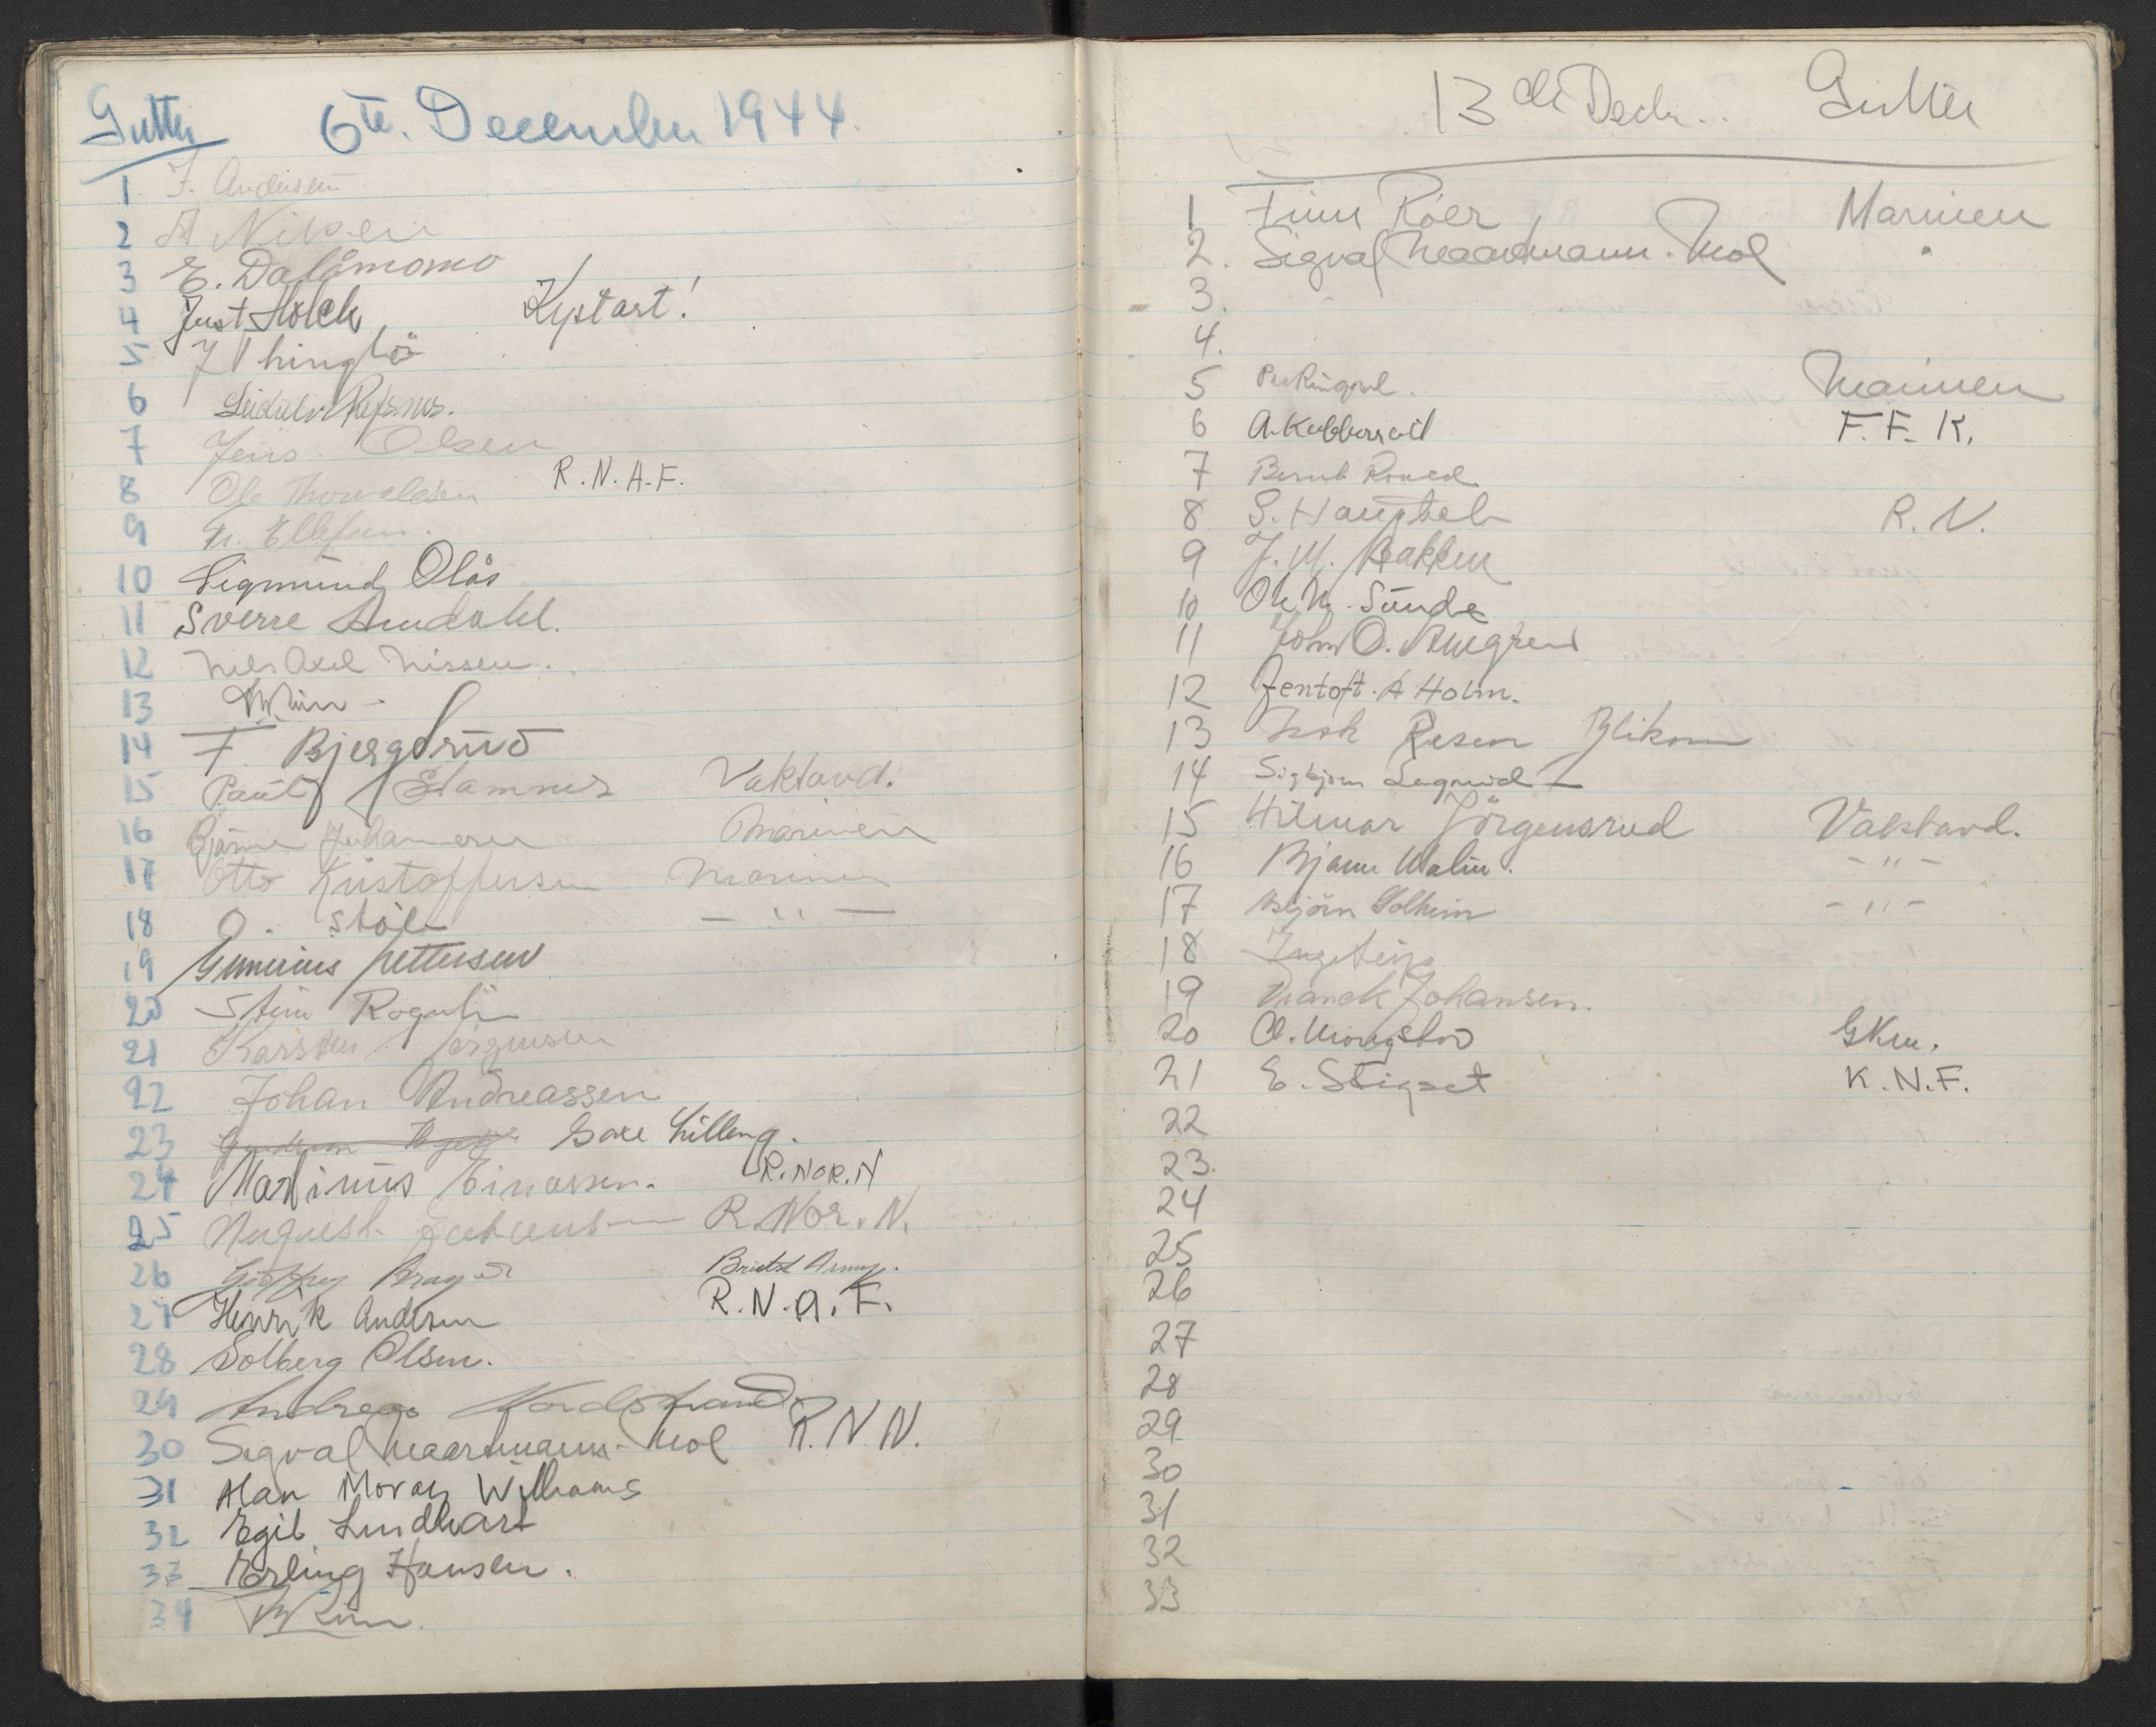 Gutter 6te. December 1944.
1 F. Andersen
2 A Nilsen
3 E. Dalåmomo
4 Just Holck Kystart!
5 J Thinglö
6 Refsnes.
7 Jens Olsen
8 Ole Thorvaldsen R.N.A.F.
9 Ellefsen.
10 Sigmund Olås
11 Sverre Amdahl.
12 Nils Axel Nissen.
13
14 F. Bjergsrud
15 Paul Stamnes Vaktavd.
16 Bjarne Johannesen Marinen
17 Otto Kristoffersen Marinen
18 O. Stöle — " —
19 Gunerius Pettersen
20 Stein
21 Karsten Jørgensen
22 Johan Andreassen
23 Lilleng.
24 Martinus Einarsen. R.NOR.N
25 August R.Nor.N.
26 Army.
27 Henrik Andersen R.N.A.F.
28 Solberg Olsen.
29 Andreas Nordstrand
30 Sigval Maartmann-Moe R.N.N.
31 Alan Moray Williams
32 Egil Lindhart
33 Erling Hansen.
34
13de Decbr.. Gutter
1 Finn Roer Marinen
2. Sigval Maartmann-Moe "
3.
4.
5 Per Ringvol. Marinen
6 A. Kubberød F.F.K.
7 Bernt
8 S. R.N.
9 J. M. Bakken
10 Ole M. Sunde
11 John O. Almgren
12 Jentoft. A Holm.
13 Resen Blikom
14 Sigbjørn
15 Hilmar Jörgensrud Vaktavd.
16 Bjarne Malin. - " -
17 Asbjörn Solheim - " -
18
19 Johansen.
20 O. Mongstad GKm.
21 E. Stigset K.N.F.
22
23.
24
25
26
27
28
29
30
31
32
33